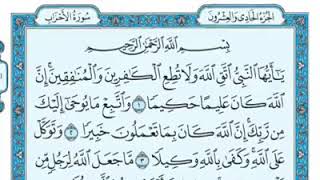 سُورَةُ الْأَحْزَابِ
الجُزْءُ الحَادِي وَالعِشْرُونَ
بِسْمِ اللَّهِ الرَّحْمَٰنِ الرَّحِيمِ
يَا أَيُّهَا النَّبِيُّ اتَّقِ اللَّهَ وَلَا تُطِعِ الْكَافِرِينَ وَالْمُنَافِقِينَ إِنَّ
اللَّهَ كَانَ عَلِيمًا حَكِيمًا ١ وَاتَّبِعْ مَا يُوحَىٰ إِلَيْكَ
مِن رَّبِّكَ إِنَّ اللَّهَ كَانَ بِمَا تَعْمَلُونَ خَبِيرًا ٢ وَتَوَكَّلْ
عَلَى اللَّهِ وَكَفَىٰ بِاللَّهِ وَكِيلًا ٣ مَّا جَعَلَ اللَّهُ لِرَجُلٍ مِّن